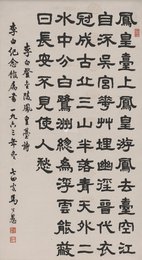 鳳皇臺上鳳皇遊鳳去臺空江
自流吳宮華艸埋幽徑晉代衣
冠成古丘三山半落青天外二
水中分白鷺洲總為浮雲能蔽
日長安不見使人愁
李白登金陵鳳皇臺詩
李白紀念館屬書 一九六三年冬 七四叟馬公愚